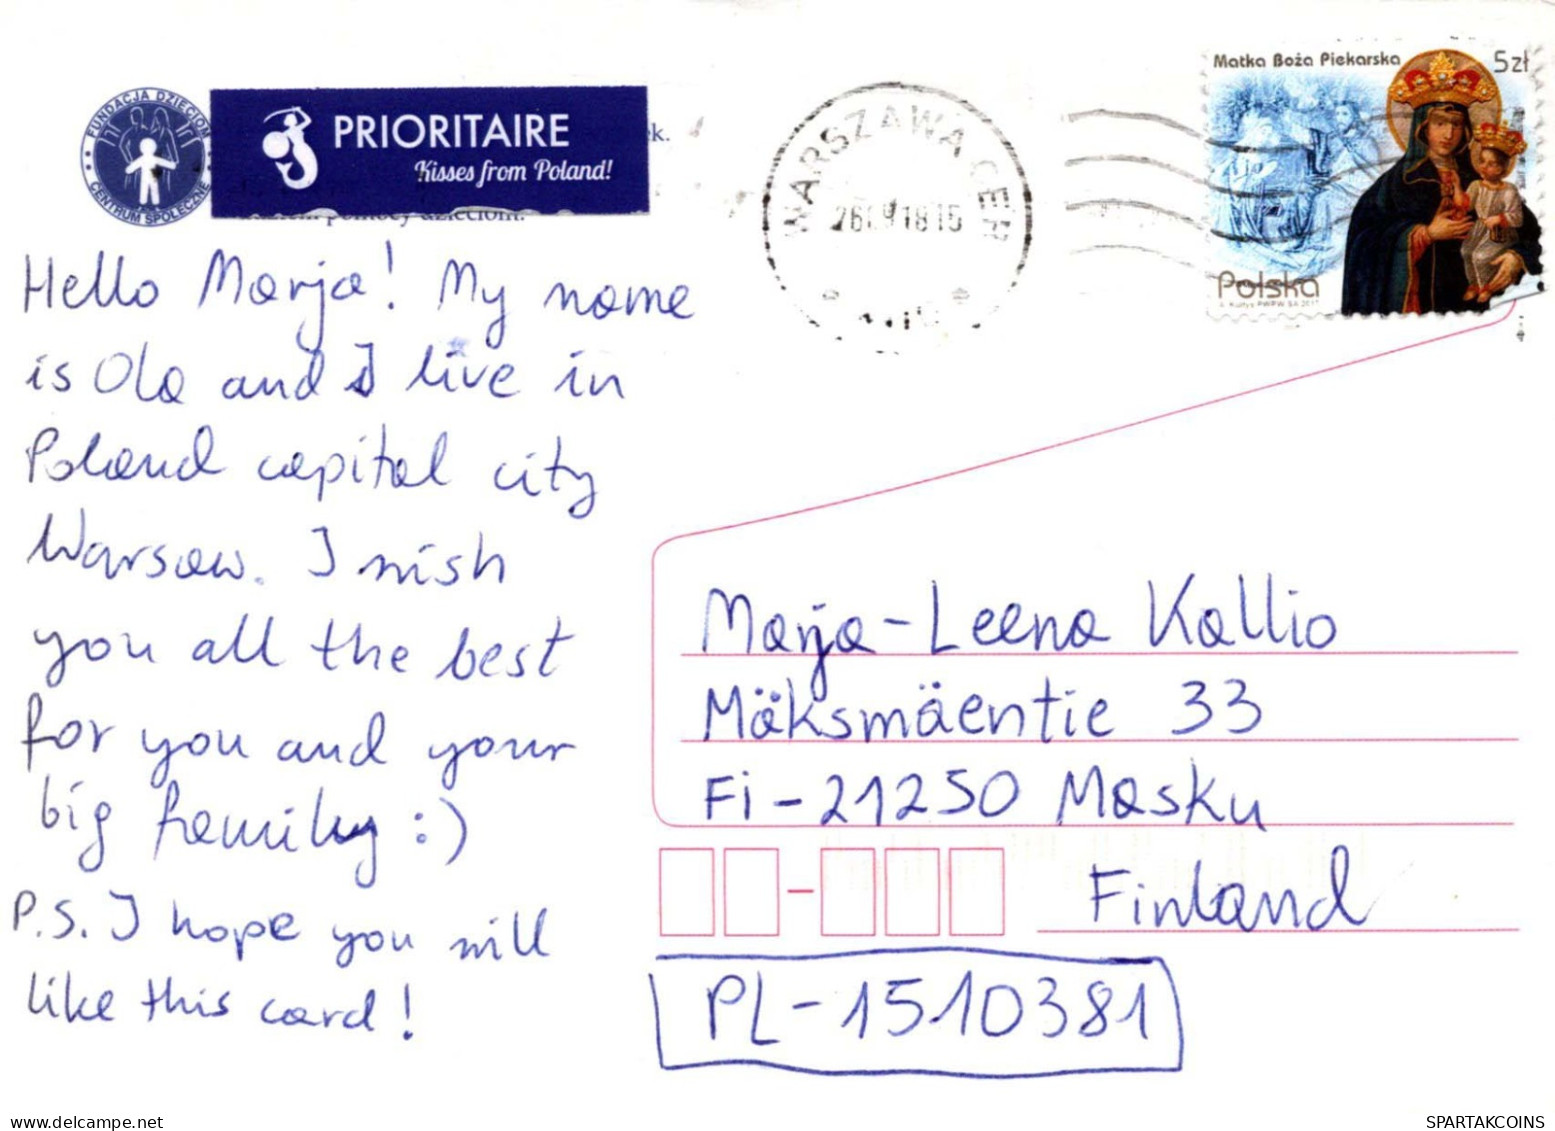 FUNDACJA DZIECIOM
CENTRUM SPOŁECZNE
PRIORITAIRE
Kisses from Poland!
pomocy dzieciom.
WARSZAWA CER
Matka Boża Piekarska 5zł
Polska
Hello Marja! My name
is Ola and I live in
Poland capital city
Warsaw. I wish
you all the best
for you and your
big family :)
P.S. I hope you will
like this card!
Marja-Leena Kallio
Mäksmäentie 33
Fi-21250 Masku
Finland
PL-1510381
delcampe.net
SPARTAKCOINS